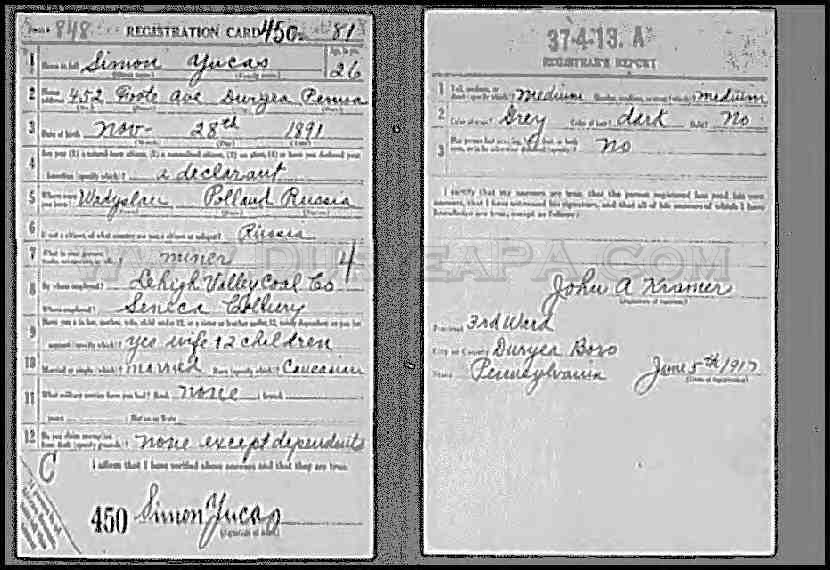 848 REGISTRATION CARD 450. 81
1 Name in full Simon Yucas Age, in yrs. 26
2 Home address 452 Foote Ave Duryea Penna
3 Date of birth Nov- 28th 1891
4 Are you (1) a natural-born citizen, (2) a naturalized citizen, (3) an alien, (4) or have you declared your
intention (specify which)? a declarant
5 Where were you born? Wadyslau Polland Russia
6 If not a citizen, of what country are you a citizen or subject? Russia
7 What is your present trade, occupation, or office? miner 4
8 By whom employed? Lehigh Valley Coal Co
Where employed? Seneca Colliery
9 Have you a father, mother, wife, child under 12, or a sister or brother under 12, solely dependent on you for
support (specify which)? yes wife + 2 children
10 Married or single (which)? married Race (specify which)? Caucasian
11 What military service have you had? Rank none branch
years Nation or State
12 Do you claim exemption from draft (specify grounds)? none except dependents
I affirm that I have verified above answers and that they are true.
C
450 Simon Yucas
37-4-13. A
REGISTRAR'S REPORT
1 Tall, medium, or short (specify which)? medium Slender, medium, or stout (which)? medium
2 Color of eyes? Grey Color of hair? dark Bald? No
3 Has person lost arm, leg, hand, foot, or both eyes, or is he otherwise disabled (specify)? No
I certify that my answers are true, that the person registered has read his own
answers, that I have witnessed his signature, and that all of his answers of which I have
knowledge are true, except as follows:
WWW.DURYEAPA.COM
John A Kramer
(Signature of registrar)
Precinct 3rd Ward
City or County Duryea Boro
State Pennsylvania June 5th 1917
(Date of registration)